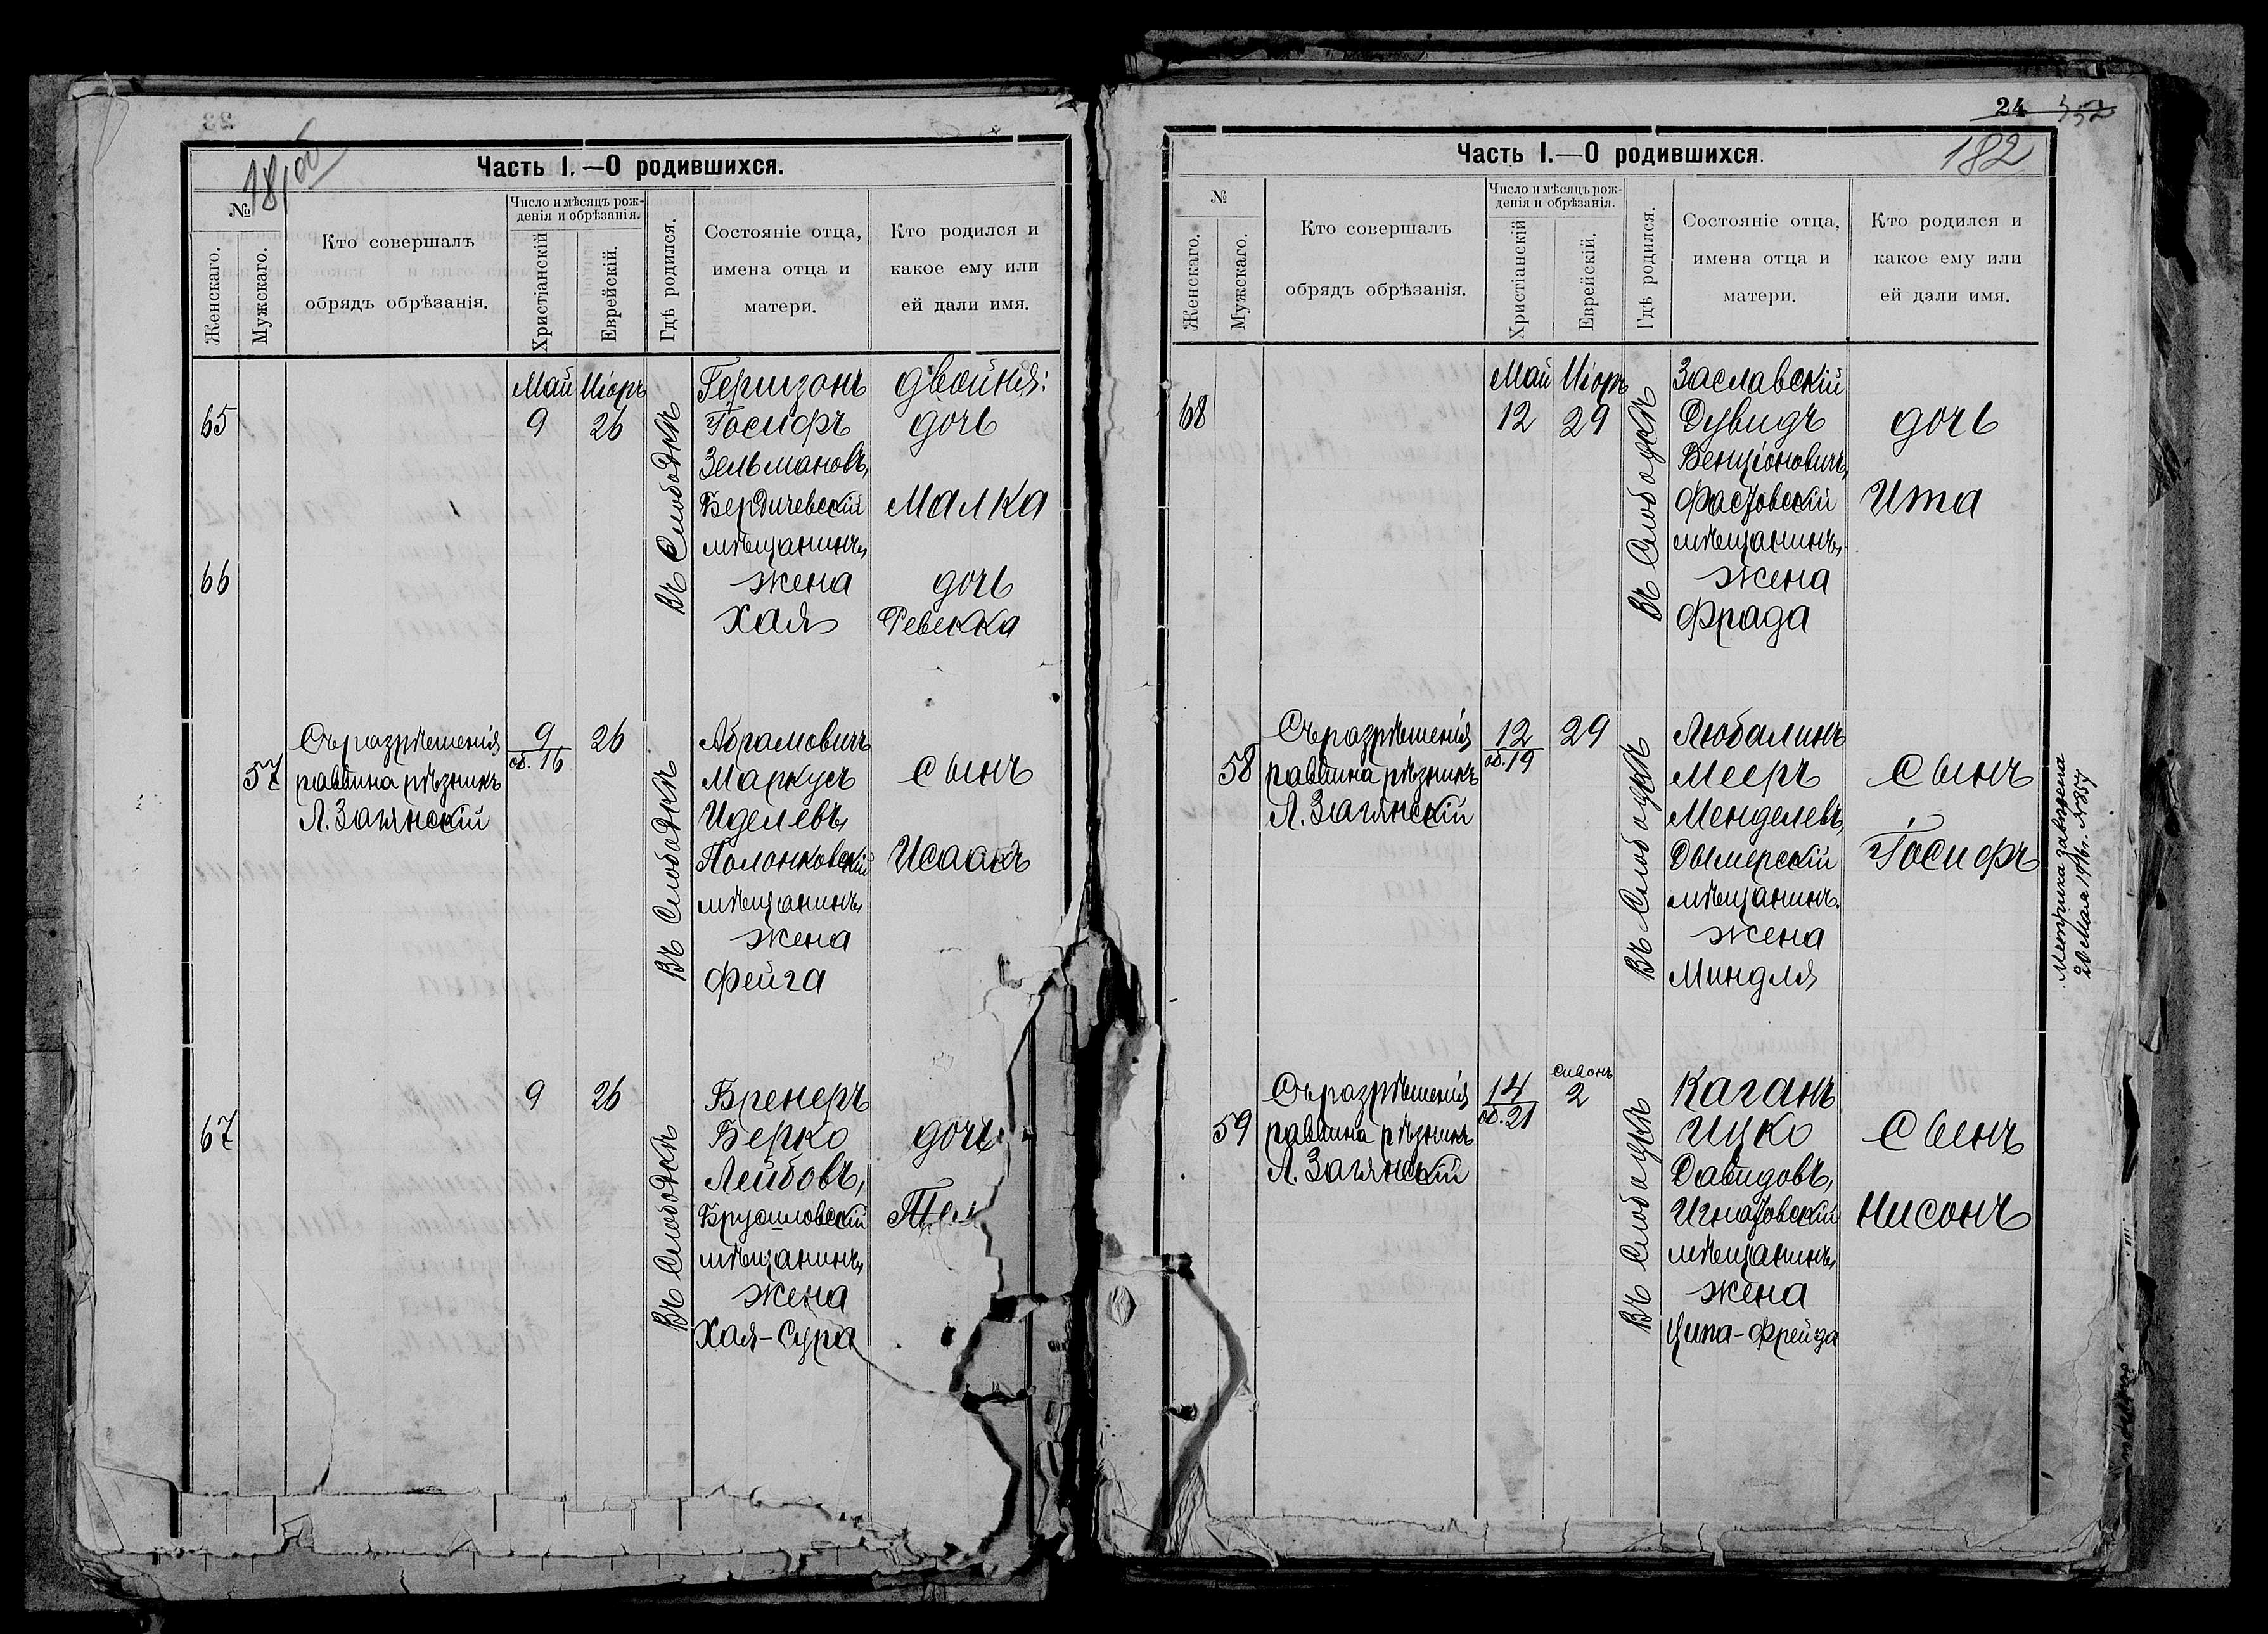 181 об
Часть I.—О родившихся.
№
Женскаго.
Мужскаго.
Кто совершалъ
обрядъ обрѣзанія.
Число и мѣсяцъ рож-
денія и обрѣзанія.
Христіанскій
Еврейскій.
Гдѣ родился.
Состояніе отца,
имена отца и
матери.
Кто родился и
какое ему или
ей дали имя.
65
Май Иіоръ
9 26
Въ Слободкѣ
Гершзонъ
Іосифъ
Зельмановъ,
Бердичевскій
мѣщанинъ,
жена
Хая
двойня:
дочь
Малка
66
дочь
Ревекка
57
Съ разрѣшенія
раввина рѣзникъ
Л. Загянскій
9
об. 16
26
Въ Слободкѣ
Абрамовичъ
Маркусъ
Иделевъ,
Полонковскій
мѣщанинъ,
жена
Фейга
сынъ
Исаакъ
67
9 26
Въ Слободкѣ
Бренеръ
Берко
Лейбовъ,
Брусиловскій
мѣщанинъ,
жена
Хая-Сура
дочь
24
352
182
Часть I.—О родившихся.
№
Женскаго.
Мужскаго.
Кто совершалъ
обрядъ обрѣзанія.
Число и мѣсяцъ рож-
денія и обрѣзанія.
Христіанскій
Еврейскій.
Гдѣ родился.
Состояніе отца,
имена отца и
матери.
Кто родился и
какое ему или
ей дали имя.
68
Май Иіоръ
12 29
Въ Слободкѣ
Заславскій
Дувидъ
Бенціоновичъ,
Фастовскій
мѣщанинъ,
жена
Фрада
дочь
Ита
58
Съ разрѣшенія
раввина рѣзникъ
Л. Загянскій
12
об. 19
29
Въ Слободкѣ
Любалинъ
Мееръ
Менделевъ,
Дымерскій
мѣщанинъ.
жена
Миндля
сынъ
Іосифъ
Метрика
20 Мая 1916г. №857
59
Съ разрѣшенія
раввина рѣзникъ
Л. Загянскій
14
об. 21
Сивонъ
2
Въ Слободкѣ
Каганъ
Ицко
Давидовъ,
Игнатовскій
мѣщанинъ,
жена
Ципа-Фрейда
сынъ
Нисонъ